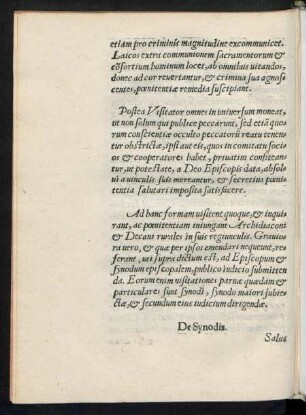 etiam pro criminis magnitudine excommunicet.
Laicos extra communionem sacramentorum &
cõsortium hominum locet, ab omnibus uitandos,
donec ad cor reuertantur, & crimina sua agnos-
centes, pœnitentiæ remedia suscipiant.
Postea Visitator omnes in uniuersum moneat,
ut non solum qui publice peccarunt, sed etiã quo-
rum conscientiæ occulto peccatoru reatu tenen-
tur obstrictæ, ipsi aut eis, quos in comitatu socios
& cooperatores habet, priuatim confitean-
tur, ut potestate, a Deo Episcopis data, absolu-
ti a uinculis suis mereantur, & secretius pœni-
tentia salutari imposita satisfacere.
Ad hanc formam uisitent quoque, & inqui-
rant, ac pœnitentiam iniungant Archidiaconi
& Decani rurales in suis regiunculis. Grauio-
ra uero, & quæ per ipsos emendari nequeunt, re-
ferant, uti supra dictum est, ad Episcopum &
synodum episcopalem, publico iudicio submitten-
da. Eorum enim uisitationes paruæ quædam &
particulares sunt synodi, synodo maiori subie-
ctæ, & secundum eius iudicium dirigendæ.
De Synodis.
Salus